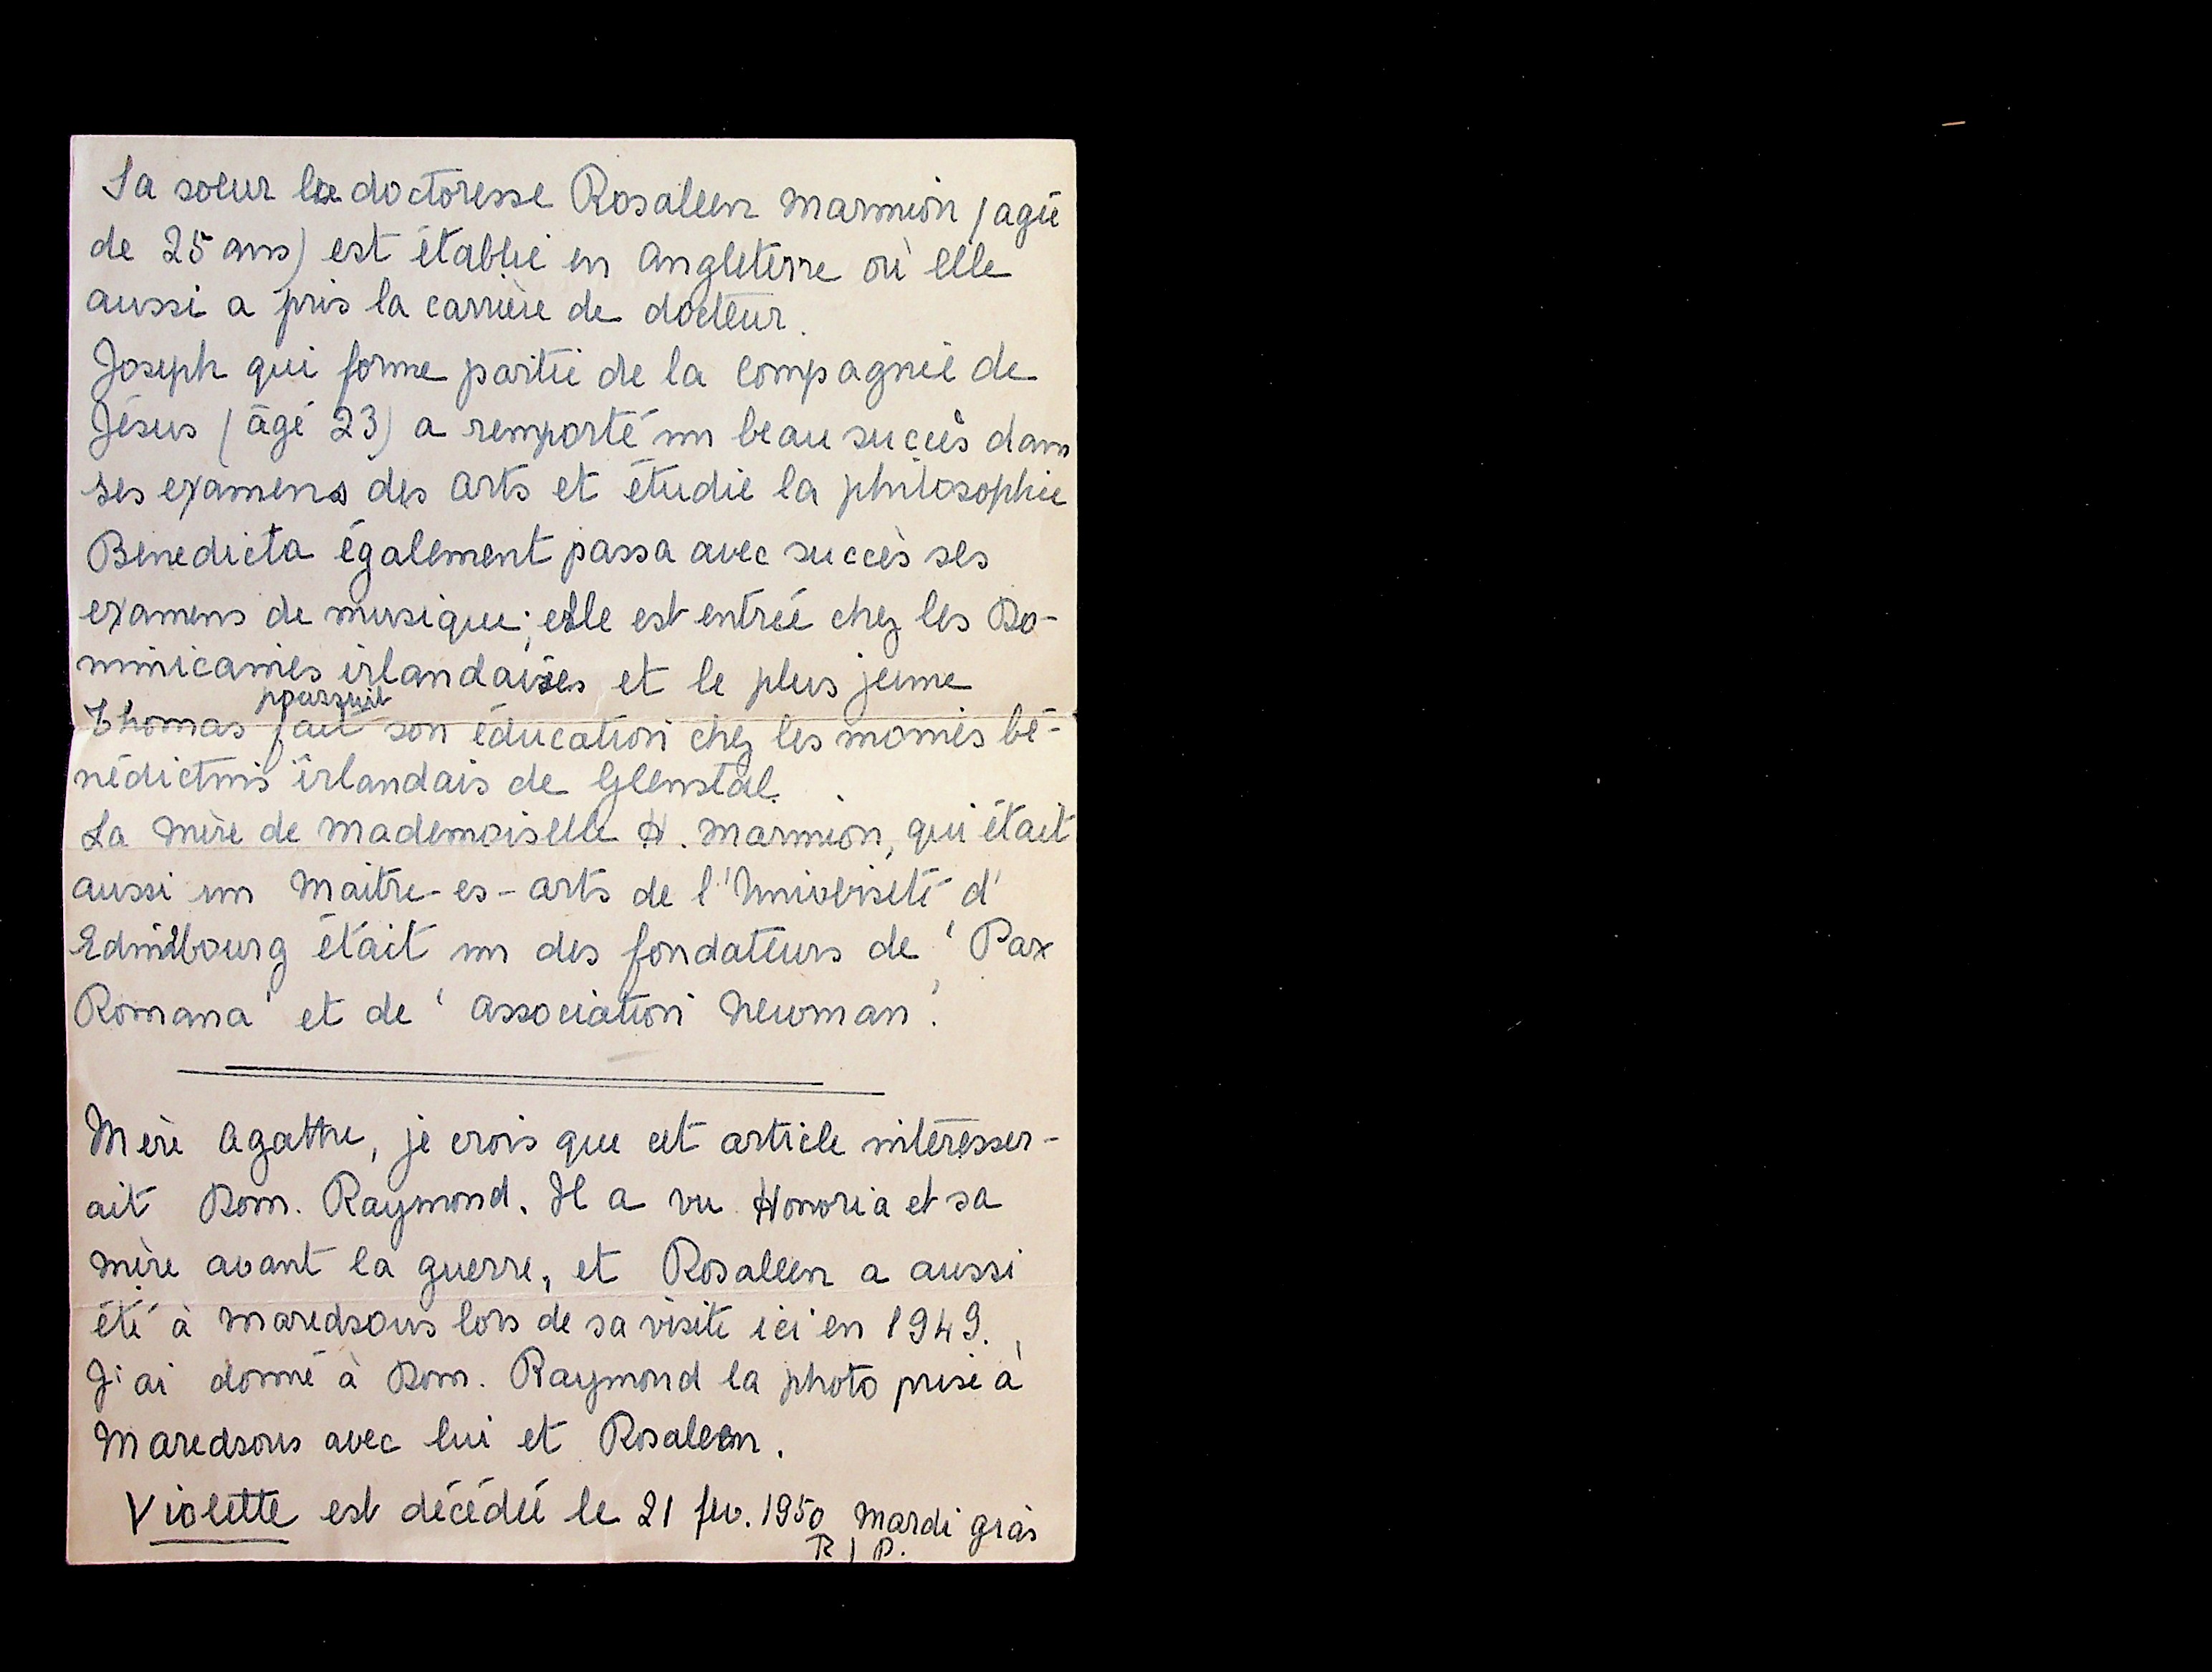 Sa soeur la doctoresse Rosaleen Marmion (agée
de 25 ans) est établie en Angleterre où elle
aussi a pris la carrière de docteur.
Joseph qui forme partie de la Compagnie de
Jésus (âgé 23) a remporté un beau succès dans
ses examens des Arts et étudie la philosophie
Benedicta également passa avec succès ses
examens de musique; elle est entrée chez les Do-
minicaines irlandaises et le plus jeune
poursuit
Thomas fait son éducation chez les moines bé-
nédictins irlandais de Glenstal.
La Mère de Mademoiselle H. Marmion, qui était
aussi un Maitre-es-arts de l'Université d'
Edimbourg était un des fondateurs de 'Pax
Romana' et de 'Association Newman'.
Mère Agathe, je crois que cet article intéresser-
ait Dom. Raymond. Il a vu Honoria et sa
mère avant la guerre, et Rosaleen a aussi
été à Maredsous lors de sa visite ici en 1949.
J'ai donné à Dom. Raymond la photo prise à
Maredsous avec lui et Rosaleen.
Violette est décédée le 21 fev. 1950 Mardi gras
R I P.